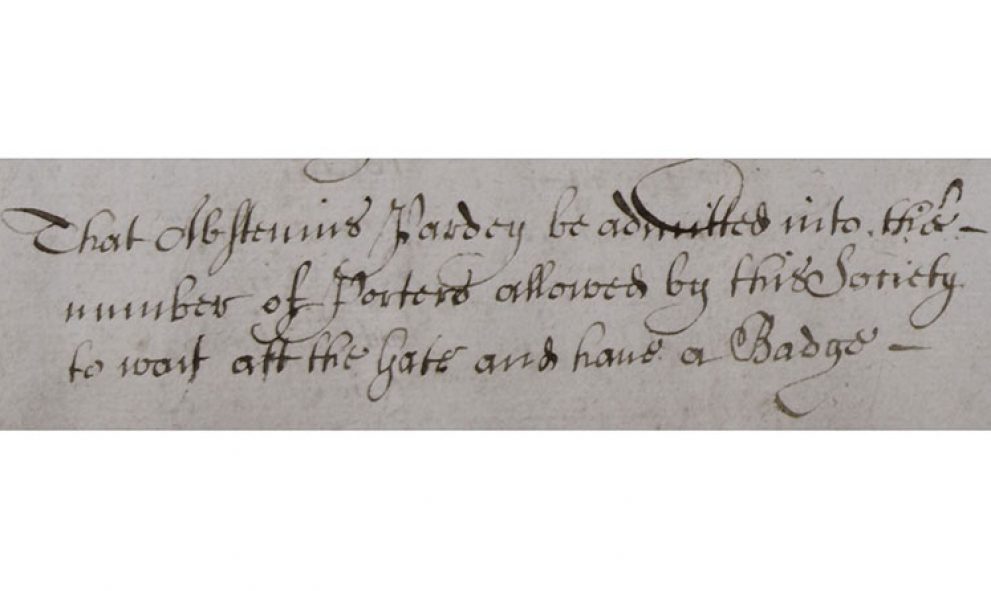 That Abstenius Pardey be admitted into the
number of Porters allowed by this Society
to wait att the gate and have a Badge